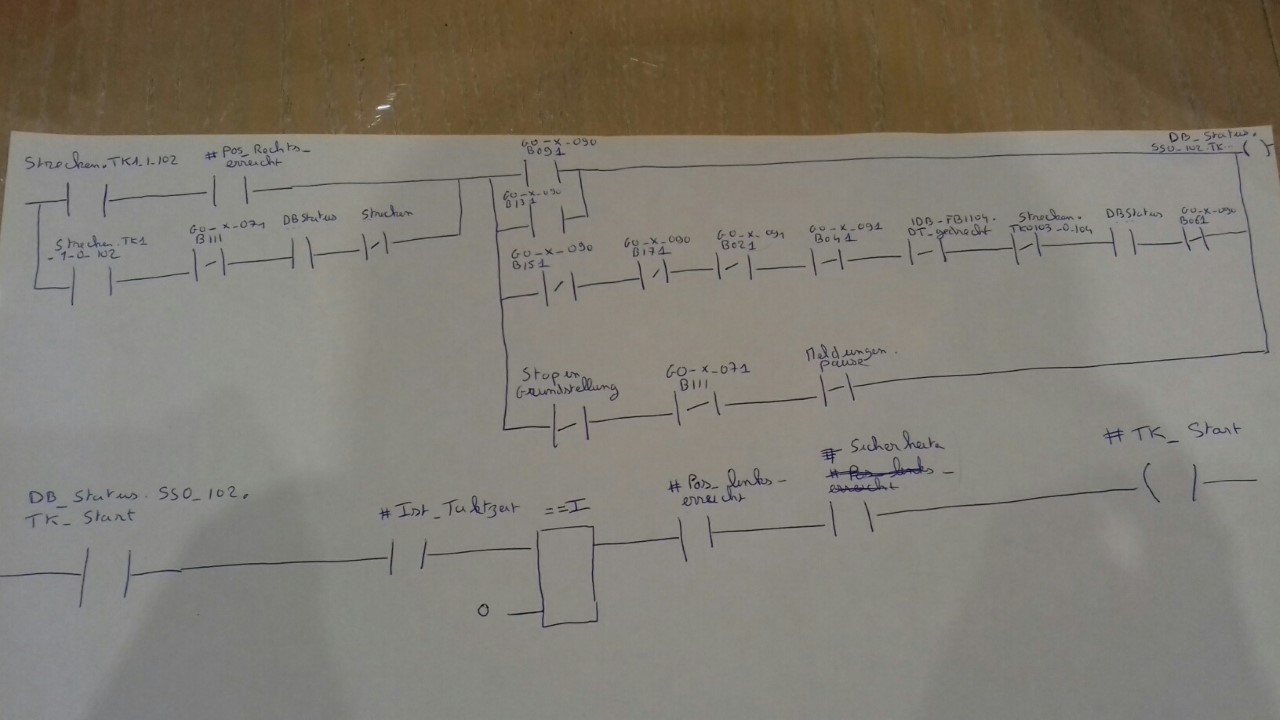 Strecken.TK1_1_102
# Pos_Rechts_
erreicht
GO-X-090
B091
DB_Status.
SSO_102.TK
GO-X-090
B131
Strecken.TK1
-1-0-102
GO-X-071
B111
DBStatus
Strecken
GO-X-090
B151
GO-X-090
B171
GO-X-091
B021
GO-X-091
B041
IDB-FB1104.
DT-gedreht
Strecken.
TK0103_0.104
DBStatus
GO-X-090
B061
Stop in
Grundstellung
GO-X-071
B111
Meldungen.
pause
DB_Status.SSO_102.
TK_Start
# Ist_Taktzeit
==I
0
# Pos_links_
erreicht
# Sicherheits
# Pos_links_
erreicht
# TK_Start